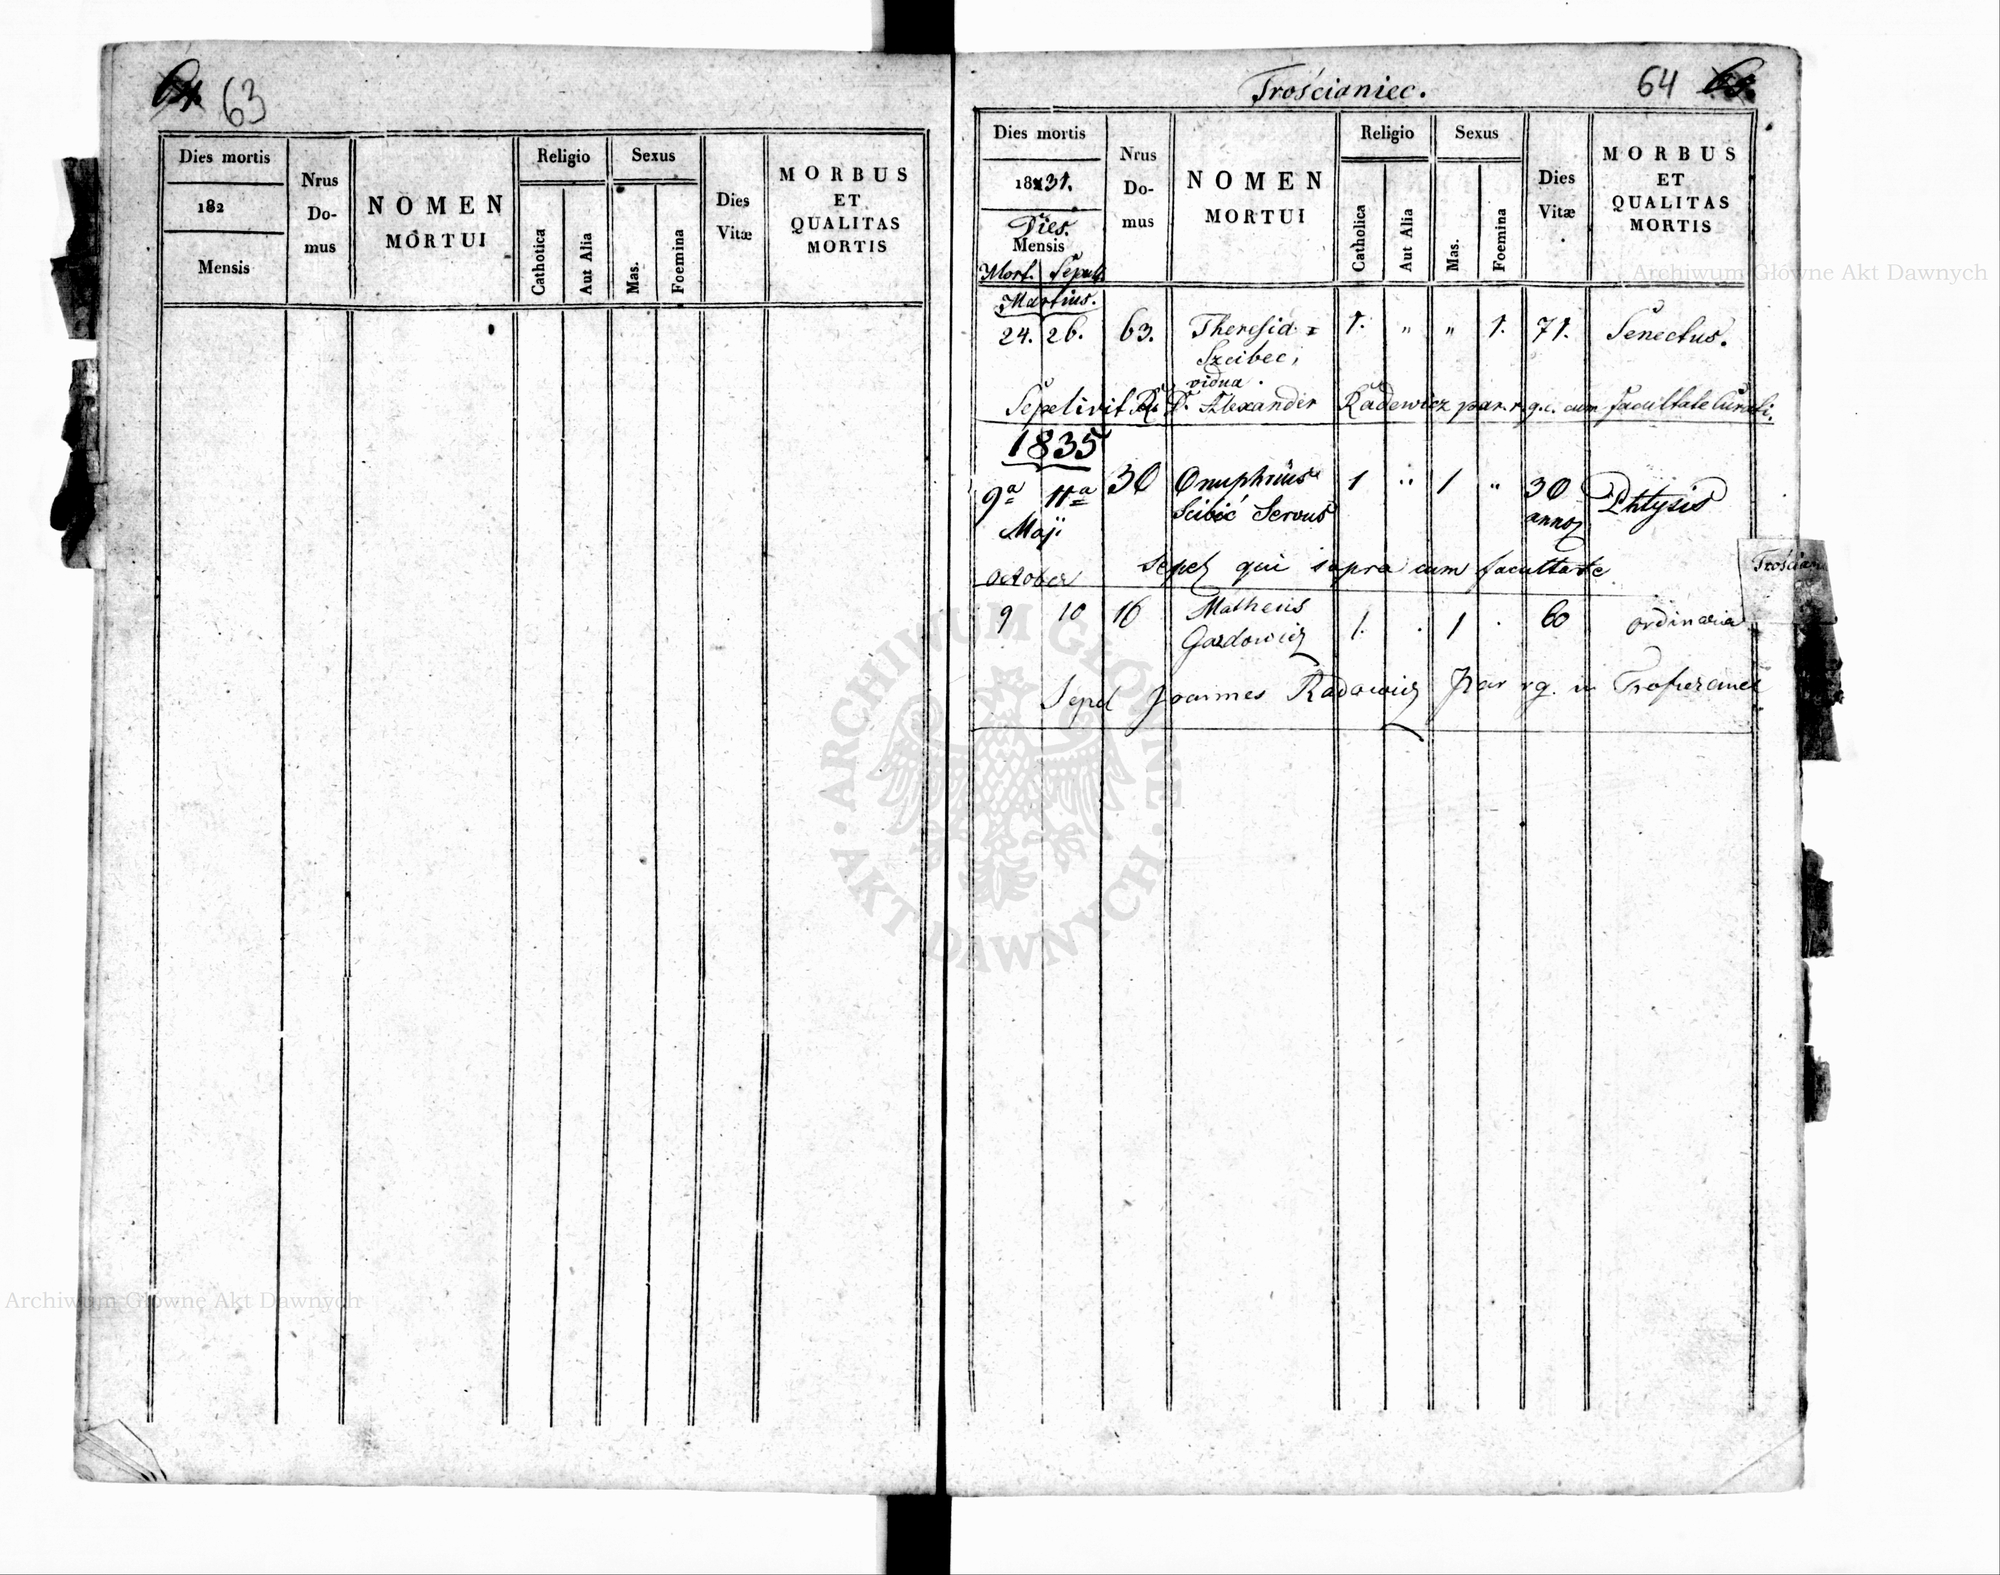 63
Dies mortis
182
Mensis
Nrus
Do-
mus
NOMEN
MORTUI
Religio
Cathotica
Aut Alia
Sexus
Mas.
Foemina
Dies
Vitæ
MORBUS
ET
QUALITAS
MORTIS
Trościaniec.
64
Dies mortis
1831.
Dies.
Mensis
Mort. Sepult.
Nrus
Do-
mus
NOMEN
MORTUI
Religio
Catholica
Aut Alia
Sexus
Mas.
Foemina
Dies
Vitæ
MORBUS
ET
QUALITAS
MORTIS
Martius.
24. 26. 63. Theresia 1. " " 1. 71. Senectus.
Szcibec,
vidua.
Sepelivit R. D. Alexander Radewicz par. r. g. c. cum facultate Curati.
1835
9a 11a 30 Onuphrius 1 " 1 " 30 Phtysis
Scibić Servus
Maji
sepel qui supra cum facultate
October
9 10 16 Matheus 1. . 1 . 60 ordinaria
Gozdowicz
Sepel Joannes Radowicz Par rg. in
Archiwum Główne Akt Dawnych
Archiwum Główne Akt Dawnych
ARCHIWUM GŁÓWNE
AKT DAWNYCH